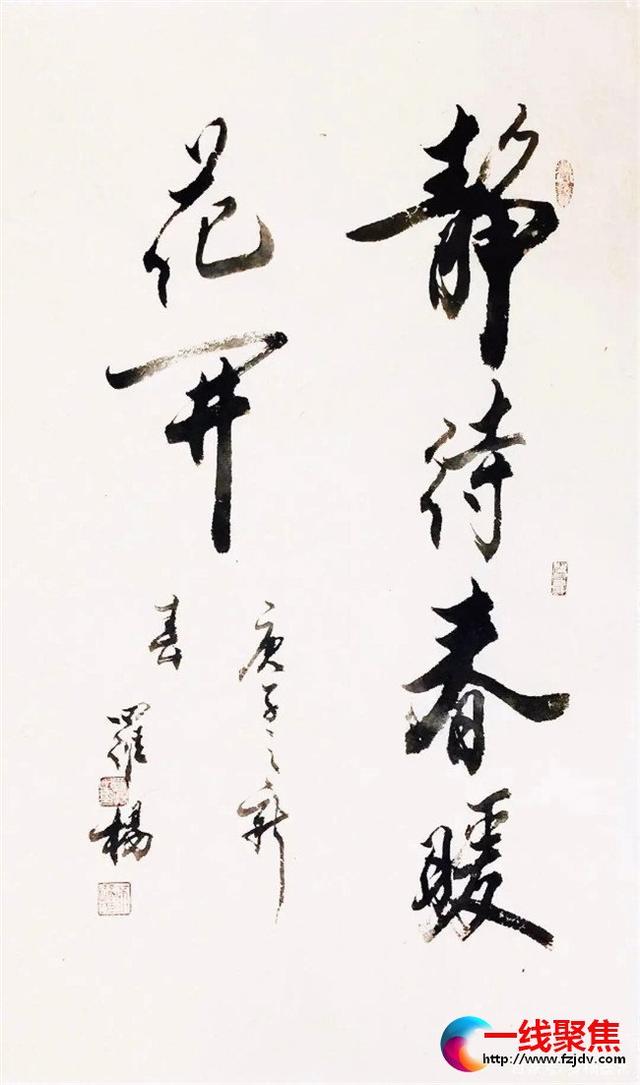 靜待春暖
花開
庚子之新
春
羅楊
一线聚焦
http://www.fzjdv.com